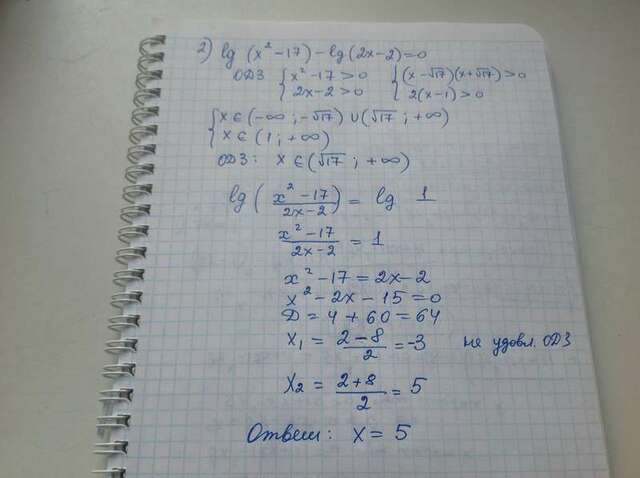 2) lg (x² - 17) - lg (2x - 2) = 0
ОДЗ { x² - 17 > 0 { (x - √17)(x + √17) > 0
2x - 2 > 0 2(x - 1) > 0
{ x ∈ (-∞ ; -√17) ∪ (√17 ; +∞)
x ∈ (1 ; +∞)
ОДЗ: x ∈ (√17 ; +∞)
lg ( (x² - 17)/(2x - 2) ) = lg 1
(x² - 17)/(2x - 2) = 1
x² - 17 = 2x - 2
x² - 2x - 15 = 0
D = 4 + 60 = 64
x₁ = (2 - 8)/2 = -3 не удовл. ОДЗ
x₂ = (2 + 8)/2 = 5
Ответ: x = 5